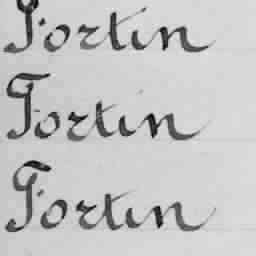 Fortin
Fortin
Fortin